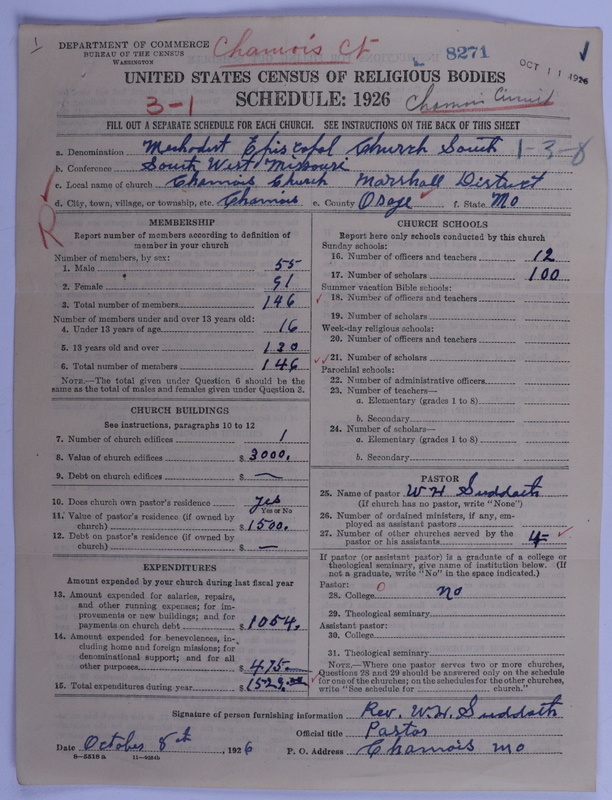 DEPARTMENT OF COMMERCE
BUREAU OF THE CENSUS
WASHINGTON
Chamois Ct
8271
OCT 11 1926
UNITED STATES CENSUS OF RELIGIOUS BODIES
3-1
SCHEDULE: 1926
Chamois Circuit
FILL OUT A SEPARATE SCHEDULE FOR EACH CHURCH. SEE INSTRUCTIONS ON THE BACK OF THIS SHEET
a. Denomination Methodist Episcopal Church South 1-3-8
b. Conference South West Missouri
c. Local name of church Chamois Church Marshall District
d. City, town, village, or township, etc. Chamois e. County Osage f. State Mo
R
MEMBERSHIP
Report number of members according to definition of member in your church
Number of members, by sex:
1. Male 55
2. Female 91
3. Total number of members 146
Number of members under and over 13 years old:
4. Under 13 years of age 16
5. 13 years old and over 130
6. Total number of members 146
NOTE.—The total given under Question 6 should be the same as the total of males and females given under Question 3.
CHURCH BUILDINGS
See instructions, paragraphs 10 to 12
7. Number of church edifices 1
8. Value of church edifices $ 3000.
9. Debt on church edifices $ —
10. Does church own pastor's residence yes
Yes or No
11. Value of pastor's residence (if owned by church) $ 1500.
12. Debt on pastor's residence (if owned by church) $ —
EXPENDITURES
Amount expended by your church during last fiscal year
13. Amount expended for salaries, repairs, and other running expenses; for improvements or new buildings; and for payments on church debt $ 1054.
14. Amount expended for benevolences, including home and foreign missions; for denominational support; and for all other purposes $ 475.
15. Total expenditures during year $ 1529.
CHURCH SCHOOLS
Report here only schools conducted by this church
Sunday schools:
16. Number of officers and teachers 12
17. Number of scholars 100
Summer vacation Bible schools:
18. Number of officers and teachers
19. Number of scholars
Week-day religious schools:
20. Number of officers and teachers
21. Number of scholars
Parochial schools:
22. Number of administrative officers
23. Number of teachers—
a. Elementary (grades 1 to 8)
b. Secondary
24. Number of scholars—
a. Elementary (grades 1 to 8)
b. Secondary
PASTOR
25. Name of pastor W H Suddath
(If church has no pastor, write "None")
26. Number of ordained ministers, if any, employed as assistant pastors
27. Number of other churches served by the pastor or his assistants 4
If pastor (or assistant pastor) is a graduate of a college or theological seminary, give name of institution below. (If not a graduate, write "No" in the space indicated.)
Pastor:
28. College 0 no
29. Theological seminary
Assistant pastor:
30. College
31. Theological seminary
NOTE.—Where one pastor serves two or more churches, Questions 28 and 29 should be answered only on the schedule for one of the churches; on the schedules for the other churches, write "See schedule for church."
Signature of person furnishing information Rev. W.H. Suddath
Official title Pastor
Date October 8th, 1926 P. O. Address Chamois Mo
8—5518a 11—9284b